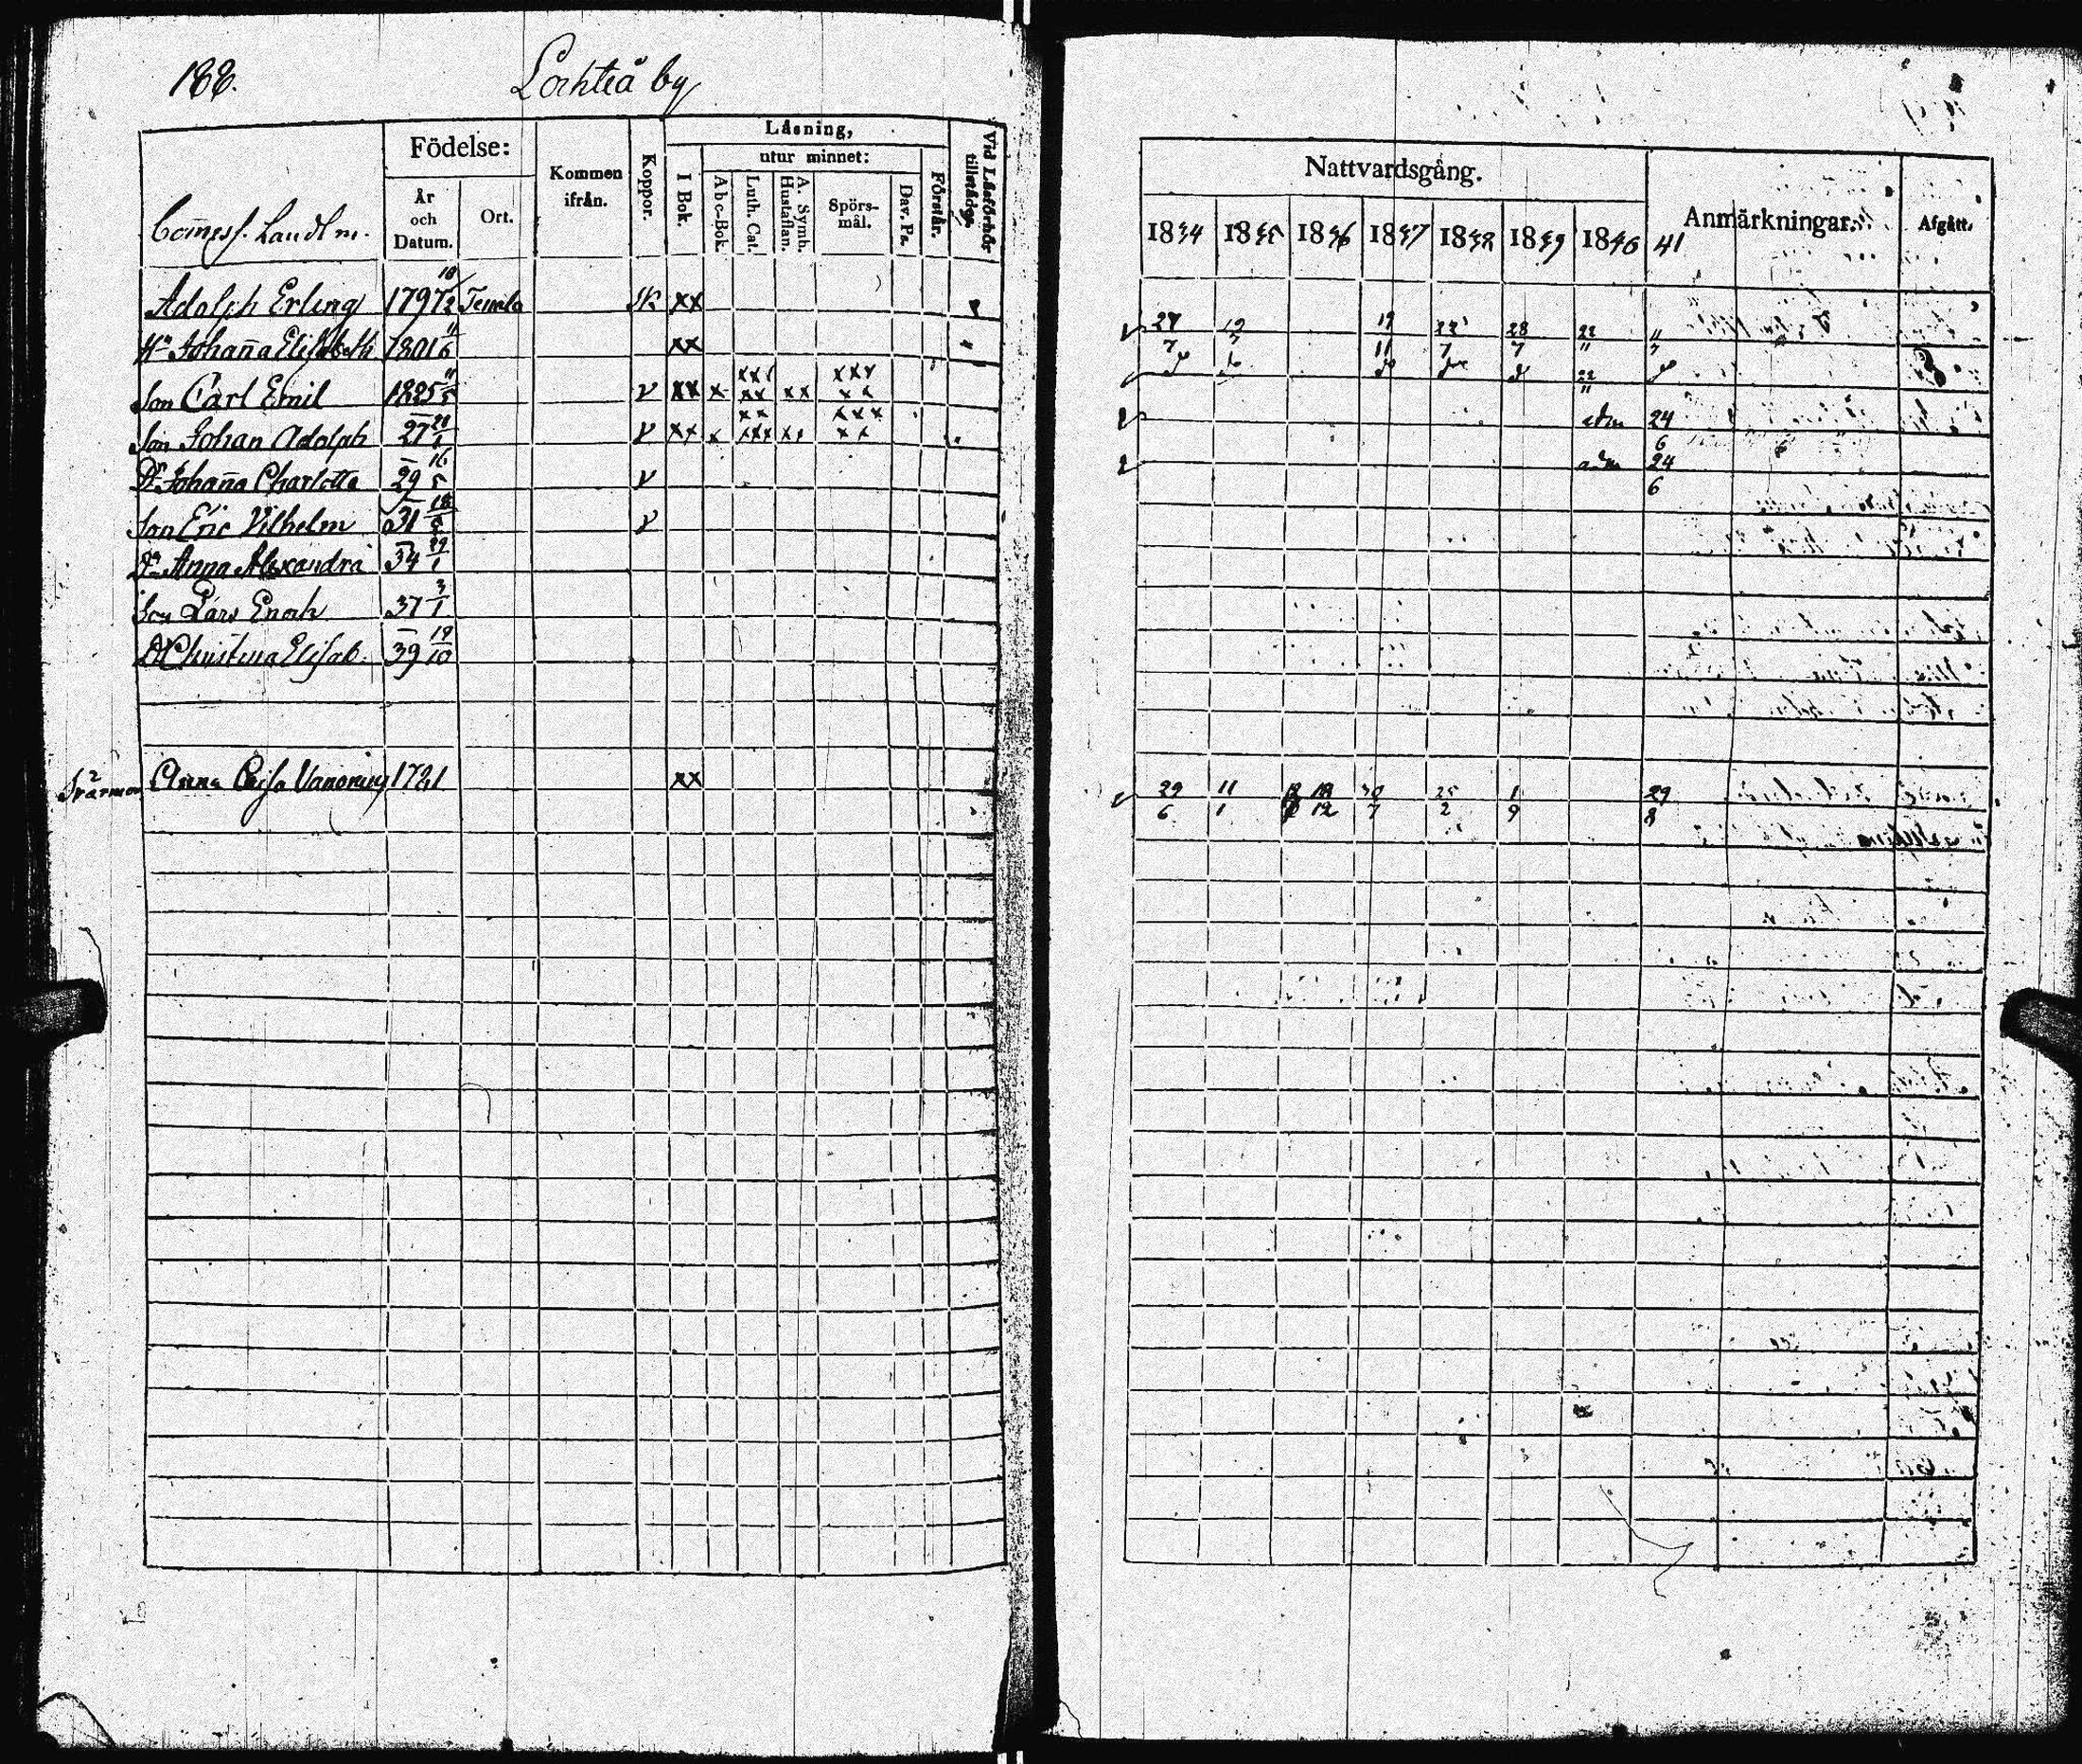 188.
Lochteå by
Födelse:
År och Datum.
Ort.
Kommen ifrån.
Koppor.
Läsning,
I Bok.
utur minnet:
Abc-Bok.
Luth. Cat.
A. Symb. Hustaflan.
Spörs-mål.
Dav. Ps.
Förstår.
Vid Läsförhör tillstädes.
Nattvardsgång.
1834 1835 1836 1837 1838 1839 1840 41
Anmärkningar.
Afgått.
Com̄iss. Landtm.
Adolph Erling 1797 18/2 Temila xx
Hu Johan̄a Elisabeth 1801 11/6 xx
Son Carl Emil 1825 11/5 v xx x xxx xx xx xxx xx
Son Johan Adolph 27 v xx x xx xxx xx xxx xx
Dr Johan̄a Charlotta 29 16/5 v
Son Eric Vilhelm 31 18/5 v
Dr Anna Alexandra 34 29/1
Son Lars Enoch 37 3/1
Dr Christina Elisab. 39 19/10
Svärmor Anna Cajsa 1721 xx
27/7 19/7 19/11 22/7 28/7 22/11
adm 24/6
adm 24/6
29/6 11/1 18/12 30/7 25/2 1/9 29/8